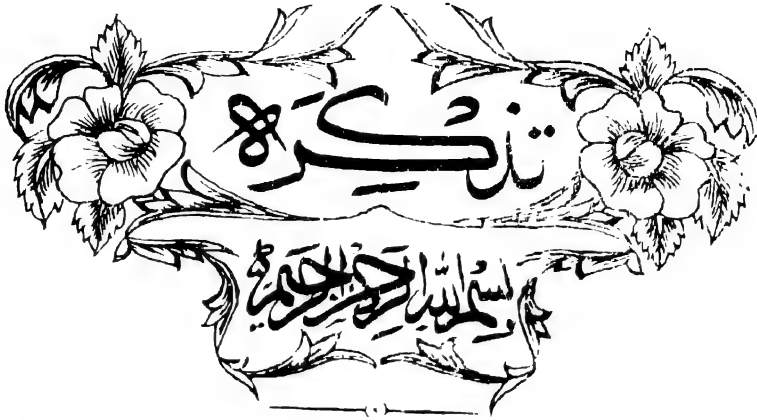 تذکِرَہ
بِسْمِ اللهِ الرَّحْمٰنِ الرَّحِيْمِ